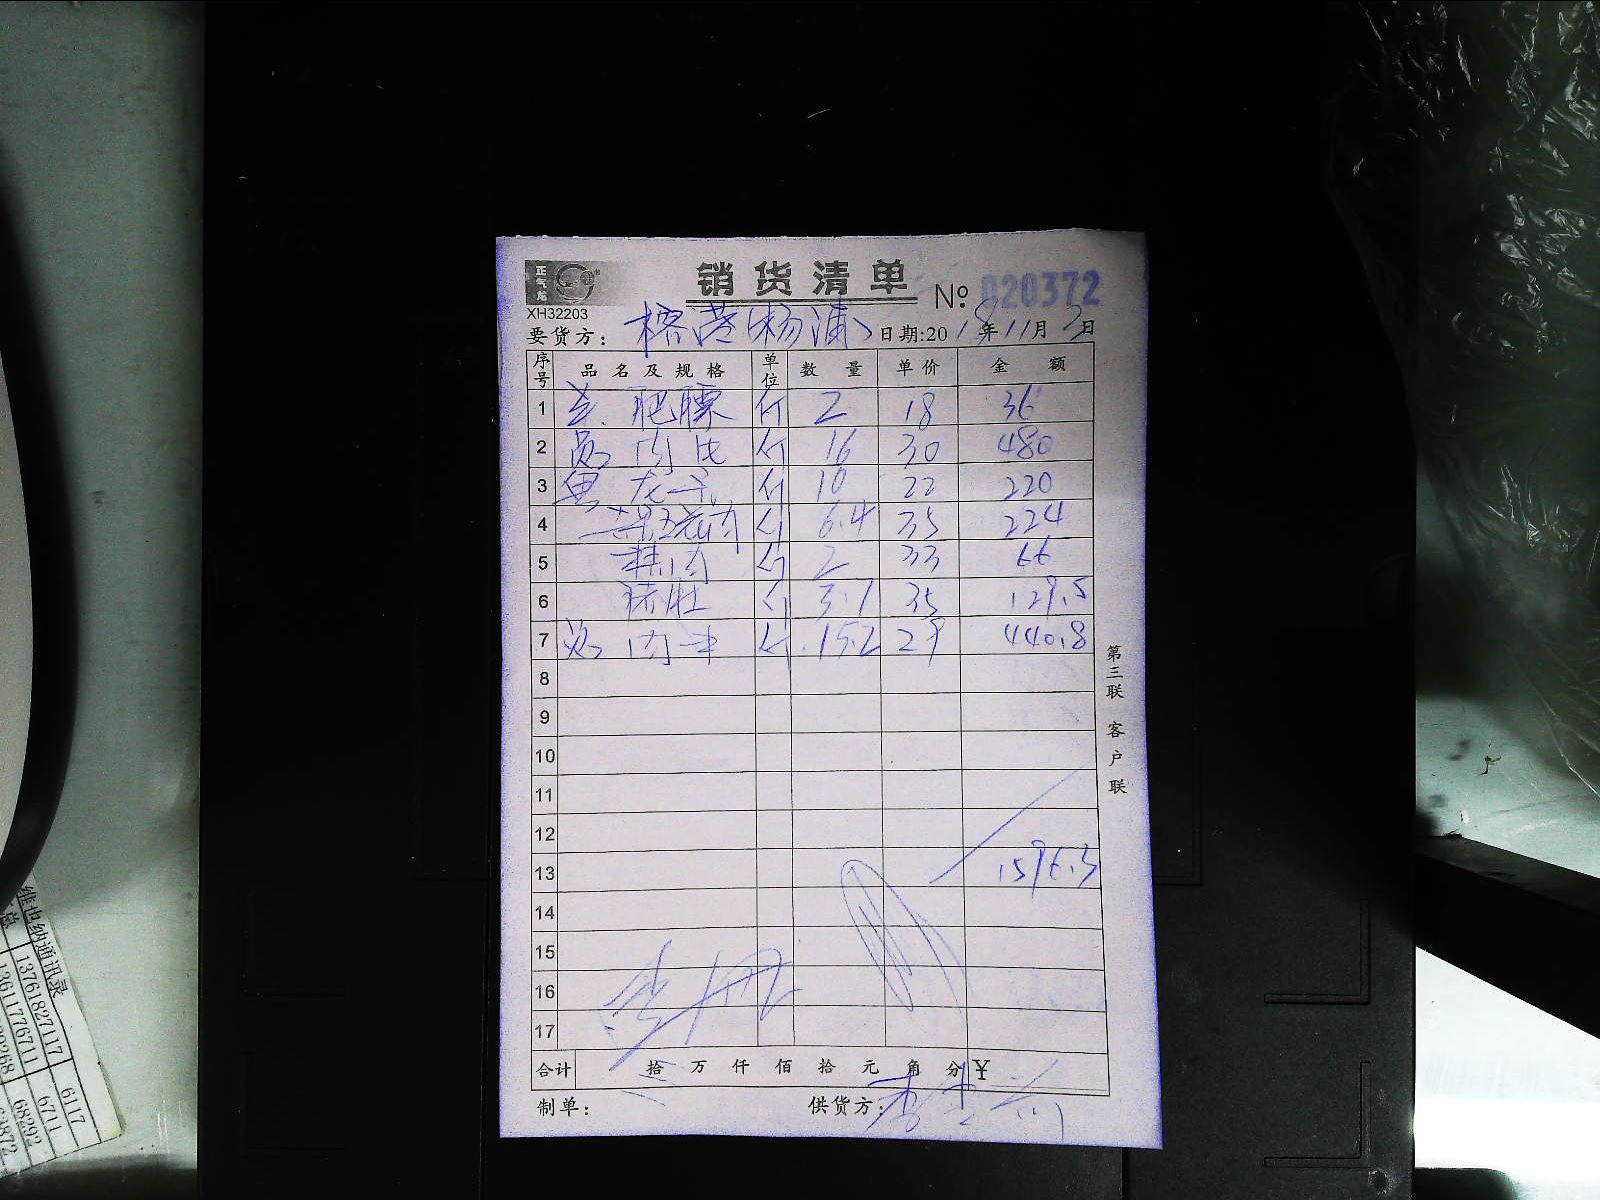 正气龙
XH32203
销货清单
№ 020372
要货方： 榕港(杨浦) 日期:2018年11月3日
序号 品名及规格 单位 数量 单价 金额
1 肥膘 斤 2 18 36
2 肉 斤 16 30 480
3 斤 10 22 220
4 肉 斤 6.4 35 224
5 肉 斤 2 33 66
6 猪肚 斤 3.7 35 129.5
7 肉 斤 15.2 29 440.8
8
9
10
11
12
13 1596.3
14
15
16
17
合计 拾 万 仟 佰 拾 元 角 分 ¥
制单： 供货方：
第三联 客户联
维也纳通讯录
13761827117 6117
13611776711 6711
68292